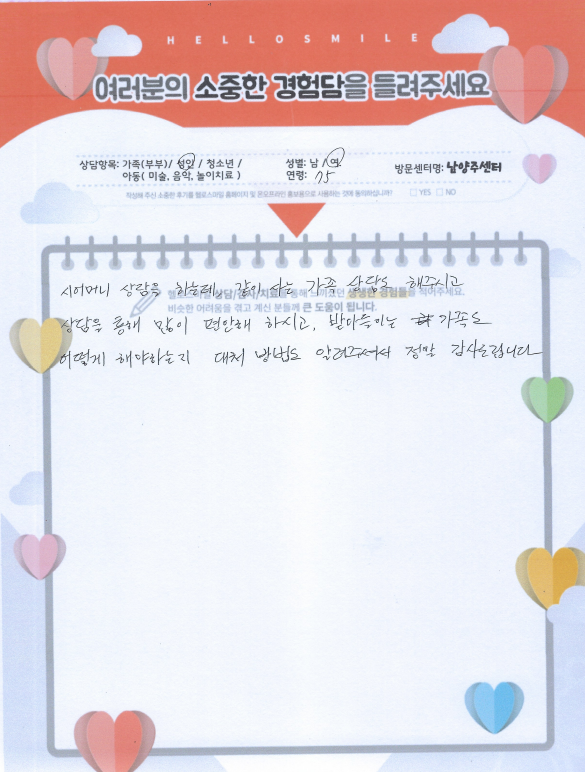 HELLOSMILE
여러분의 소중한 경험담을 들려주세요
상담항목: 가족(부부)/ 성인 / 청소년 /
아동( 미술, 음악, 놀이치료 )
성별: 남 / 여
연령: 75
방문센터명: 남양주센터
작성해 주신 소중한 후기를 헬로스마일 홈페이지 및 온오프라인 홍보용으로 사용하는 것에 동의하십니까? □ YES □ NO
시어머니 상담을 하는데, 같이 사는 가족 상담도 해주시고
상담/검사/치료를 통해 느끼셨던 생생한 경험들을 적어주세요.
비슷한 어려움을 겪고 계신 분들께 큰 도움이 됩니다.
상담을 통해 많이 편안해 하시고, 받아들이는 가족도
어떻게 해야하는지 대처 방법도 알려주셔서 정말 감사드립니다